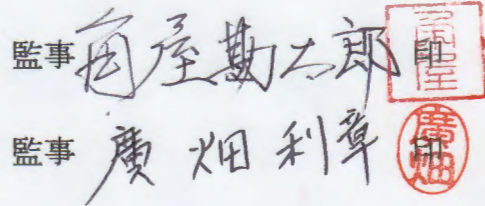 監事 角屋勘太郎 印
監事 廣畑利章 印
廣畑